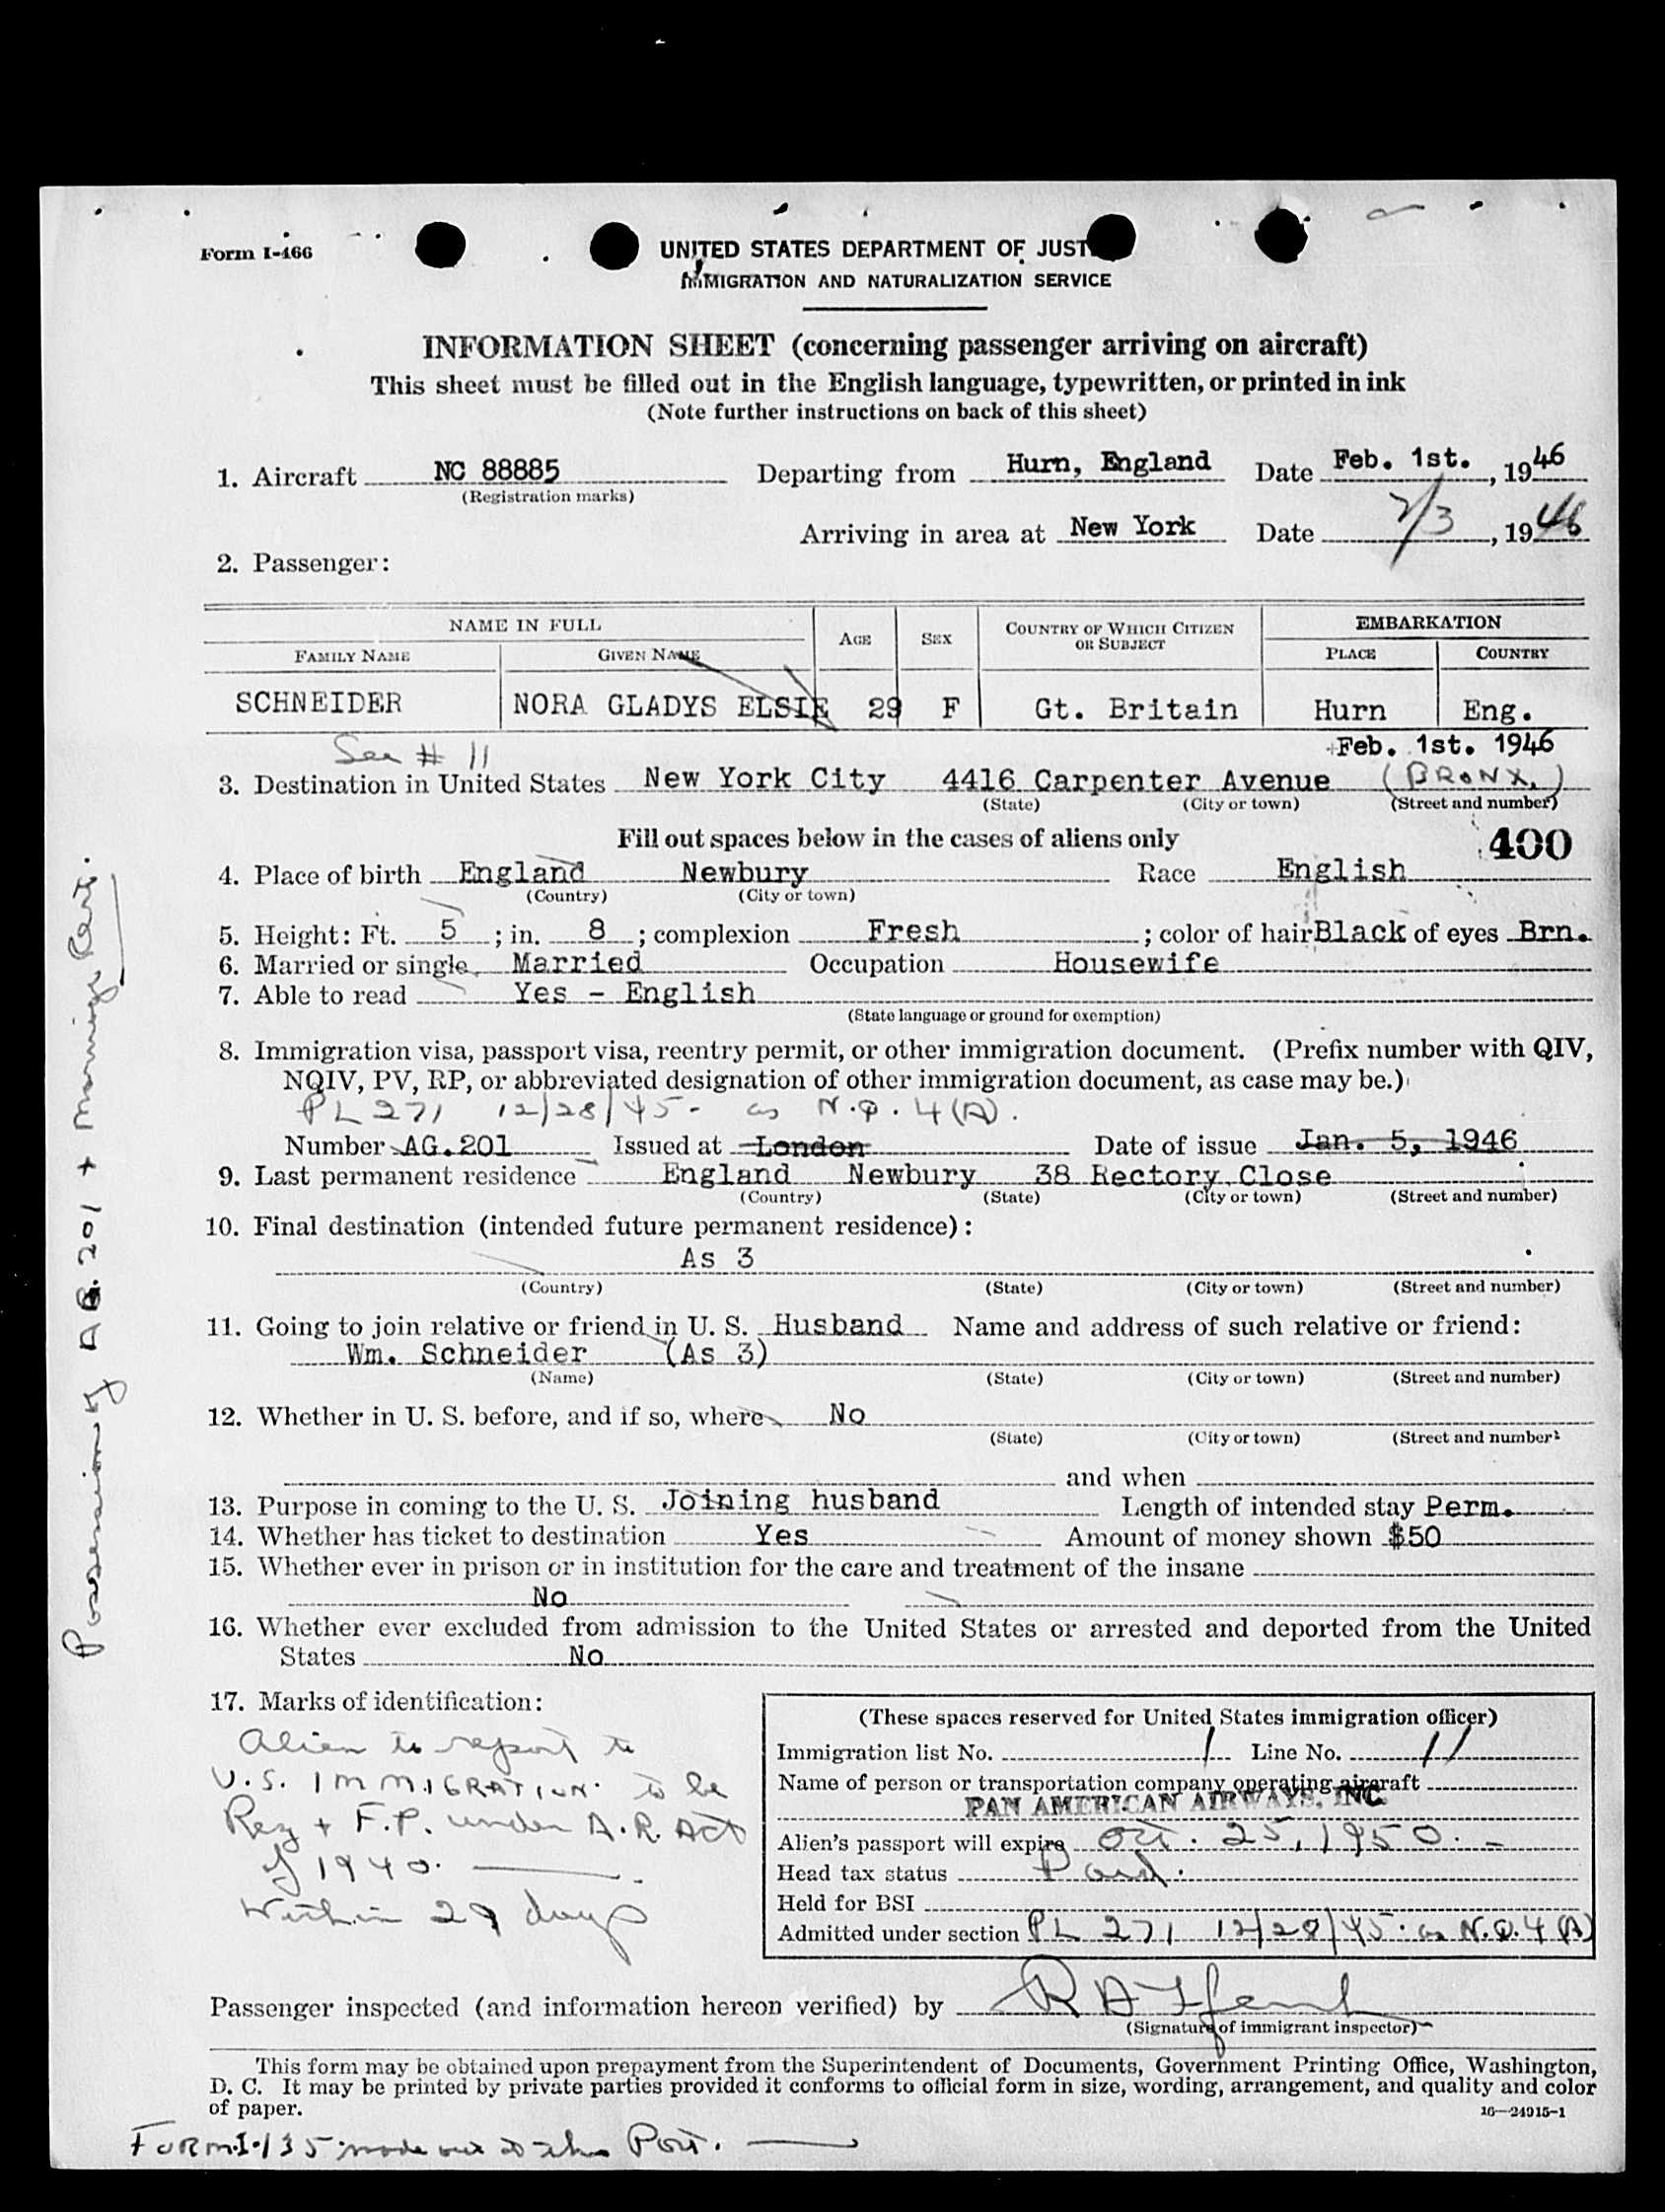 Form I-466
UNITED STATES DEPARTMENT OF JUST
IMMIGRATION AND NATURALIZATION SERVICE
INFORMATION SHEET (concerning passenger arriving on aircraft)
This sheet must be filled out in the English language, typewritten, or printed in ink
(Note further instructions on back of this sheet)
1. Aircraft NC 88885 Departing from Hurn, England Date Feb. 1st., 1946
(Registration marks)
Arriving in area at New York Date 2/3, 1946
2. Passenger:
NAME IN FULL AGE SEX COUNTRY OF WHICH CITIZEN OR SUBJECT EMBARKATION
FAMILY NAME GIVEN NAME PLACE COUNTRY
SCHNEIDER NORA GLADYS ELSIE 29 F Gt. Britain Hurn Eng.
See # 11 Feb. 1st. 1946
3. Destination in United States New York City 4416 Carpenter Avenue (BRONX.)
(State) (City or town) (Street and number)
Fill out spaces below in the cases of aliens only 400
4. Place of birth England Newbury Race English
(Country) (City or town)
5. Height: Ft. 5; in. 8; complexion Fresh; color of hair Black of eyes Brn.
6. Married or single Married Occupation Housewife
7. Able to read Yes - English
(State language or ground for exemption)
8. Immigration visa, passport visa, reentry permit, or other immigration document. (Prefix number with QIV,
NQIV, PV, RP, or abbreviated designation of other immigration document, as case may be.)
PL 271 12/28/45- as N.Q. 4(A).
Number AG.201 Issued at London Date of issue Jan. 5, 1946
9. Last permanent residence England Newbury 38 Rectory Close
(Country) (State) (City or town) (Street and number)
10. Final destination (intended future permanent residence):
As 3
(Country) (State) (City or town) (Street and number)
11. Going to join relative or friend in U. S. Husband Name and address of such relative or friend:
Wm. Schneider (As 3)
(Name) (State) (City or town) (Street and number)
12. Whether in U. S. before, and if so, where No
(State) (City or town) (Street and number)
and when
13. Purpose in coming to the U. S. Joining husband Length of intended stay Perm.
14. Whether has ticket to destination Yes Amount of money shown $50
15. Whether ever in prison or in institution for the care and treatment of the insane
No
16. Whether ever excluded from admission to the United States or arrested and deported from the United
States No
17. Marks of identification:
Alien to report to
U.S. IMMIGRATION to be
Reg + F.P. under A.R. Act
of 1940.
Within 29 days
(These spaces reserved for United States immigration officer)
Immigration list No. 1 Line No. 11
Name of person or transportation company operating aircraft
PAN AMERICAN AIRWAYS, INC.
Alien's passport will expire Oct. 25, 1950. -
Head tax status Paid.
Held for BSI
Admitted under section PL 271 12/28/45 as N.Q. 4(A)
Passenger inspected (and information hereon verified) by
(Signature of immigrant inspector)
This form may be obtained upon prepayment from the Superintendent of Documents, Government Printing Office, Washington,
D. C. It may be printed by private parties provided it conforms to official form in size, wording, arrangement, and quality and color
of paper.
16—24915-1
FORM I-135 made out at this Port.
Possession of AG.201 + Marriage Cert.